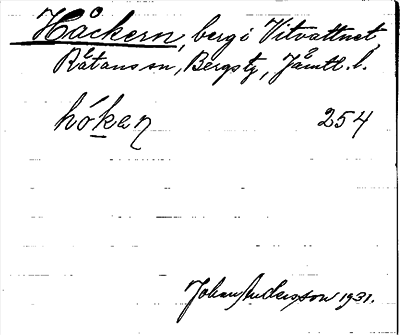 Håckern, berg i Vitvattnet,
Råtans sn, Bergs tg, Jämtl. l.
hó̲kaɳ 254
Johan Andersson 1931.